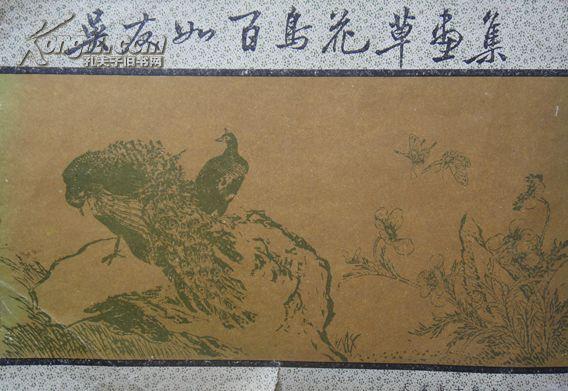 吴友如百鸟花草画集
Kongfz.com
孔夫子旧书网